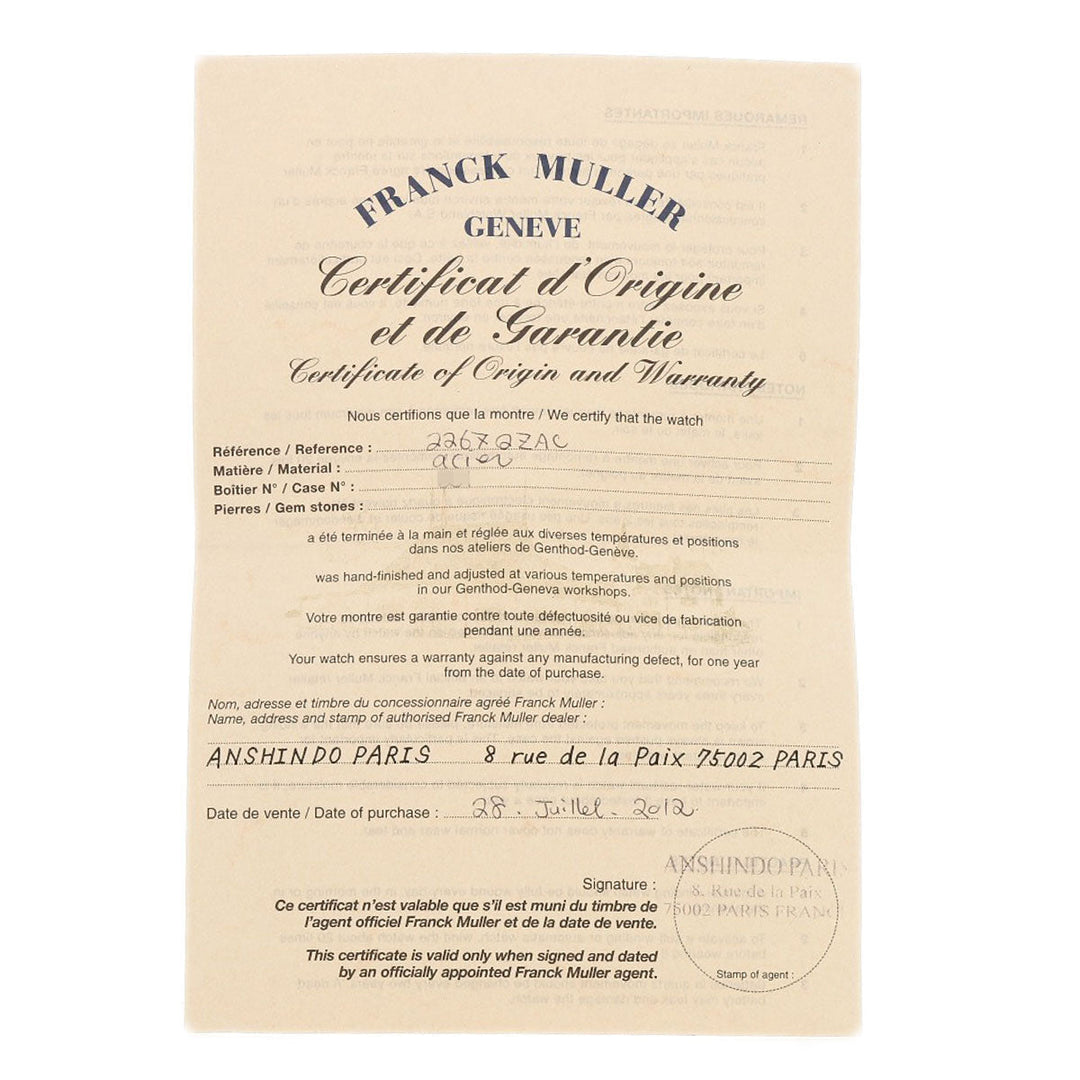 FRANCK MULLER
GENEVE
Certificat d'Origine
et de Garantie
Certificate of Origin and Warranty
Nous certifions que la montre / We certify that the watch
Référence / Reference : 2267 QZ AC
Matière / Material : acier
Boîtier N° / Case N° :
Pierres / Gem stones :
a été terminée à la main et réglée aux diverses températures et positions
dans nos ateliers de Genthod-Genève.
was hand-finished and adjusted at various temperatures and positions
in our Genthod-Geneva workshops.
Votre montre est garantie contre toute défectuosité ou vice de fabrication
pendant une année.
Your watch ensures a warranty against any manufacturing defect, for one year
from the date of purchase.
Nom, adresse et timbre du concessionnaire agréé Franck Muller :
Name, address and stamp of authorised Franck Muller dealer :
ANSHINDO PARIS 8 rue de la Paix 75002 PARIS
Date de vente / Date of purchase : 28. Juillet. 2012
ANSHINDO PARIS
Signature : 8, Rue de la Paix
Ce certificat n'est valable que s'il est muni du timbre de 75002 PARIS FRANC
l'agent officiel Franck Muller et de la date de vente.
This certificate is valid only when signed and dated
by an officially appointed Franck Muller agent.
Stamp of agent :